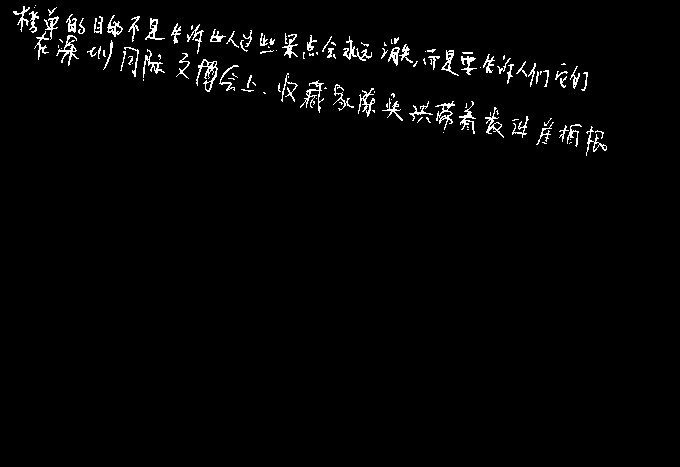 榜单的目的不是告诉世人这些景点会永远消失,而是要告诉人们它们
在深圳国际文博会上、收藏家陈奕洪带着数件崖柏根